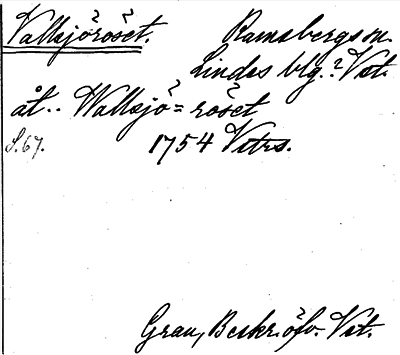 Vallsjöröset. Ramsbergs sn.
Lindes blg.? Vst.
åt.. Wallsjö=röset
S. 67. 1754 Vstrs.
Grau, Beskr. öfv. Vst.